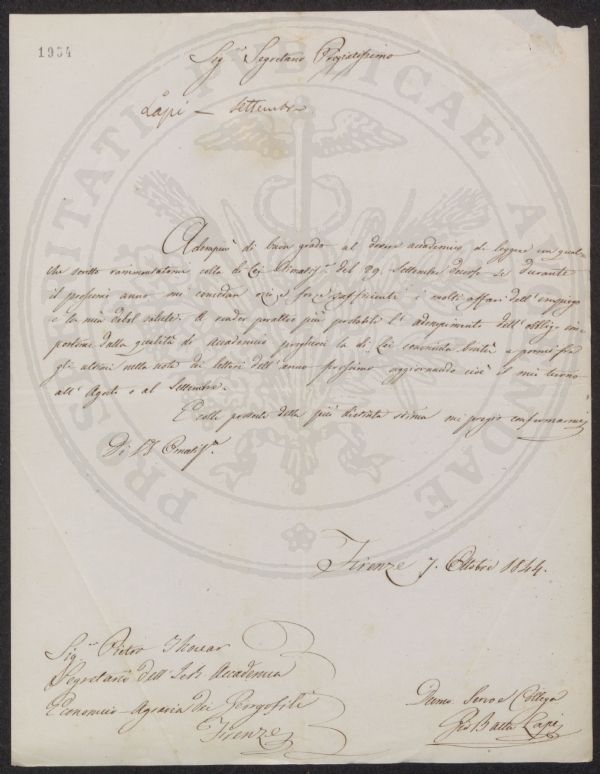 1934
Sig.r Segretario Pregiatissimo
Lapi — Settembre
Adempirò di buon grado al dovere accademico di leggere un qual-
che scritto rammentatomi colla di Lei Pregiatis.a del 29. Settembre decorso se durante
il prossimo anno mi concedan ozj e forze sufficienti i molti affari dell'impiego
e la mia debol salute. A render perattro più probabile l'adempimento dell'obbligo im-
postomi dalla qualità di Accademico pregherei la di Lei conosciuta bontà a pormi fra
gli ultimi nella nota dei lettori dell'anno prossimo aggiornando cioè il mio turno
all'Agosto o al Settembre.
E colla protesta della più distinta stima mi pregio confermarmi
Di VS Ornatis.a
Firenze 7. Ottobre 1844.
Sig.r Pietro Thouar
Segretario dell'I. e R. Accademia
Economico-Agraria dei Georgofili
Firenze
Devmo. Servo e Collega
Gio. Batta Lapi
PROSPERITATI PUBLICAE AUGENDAE